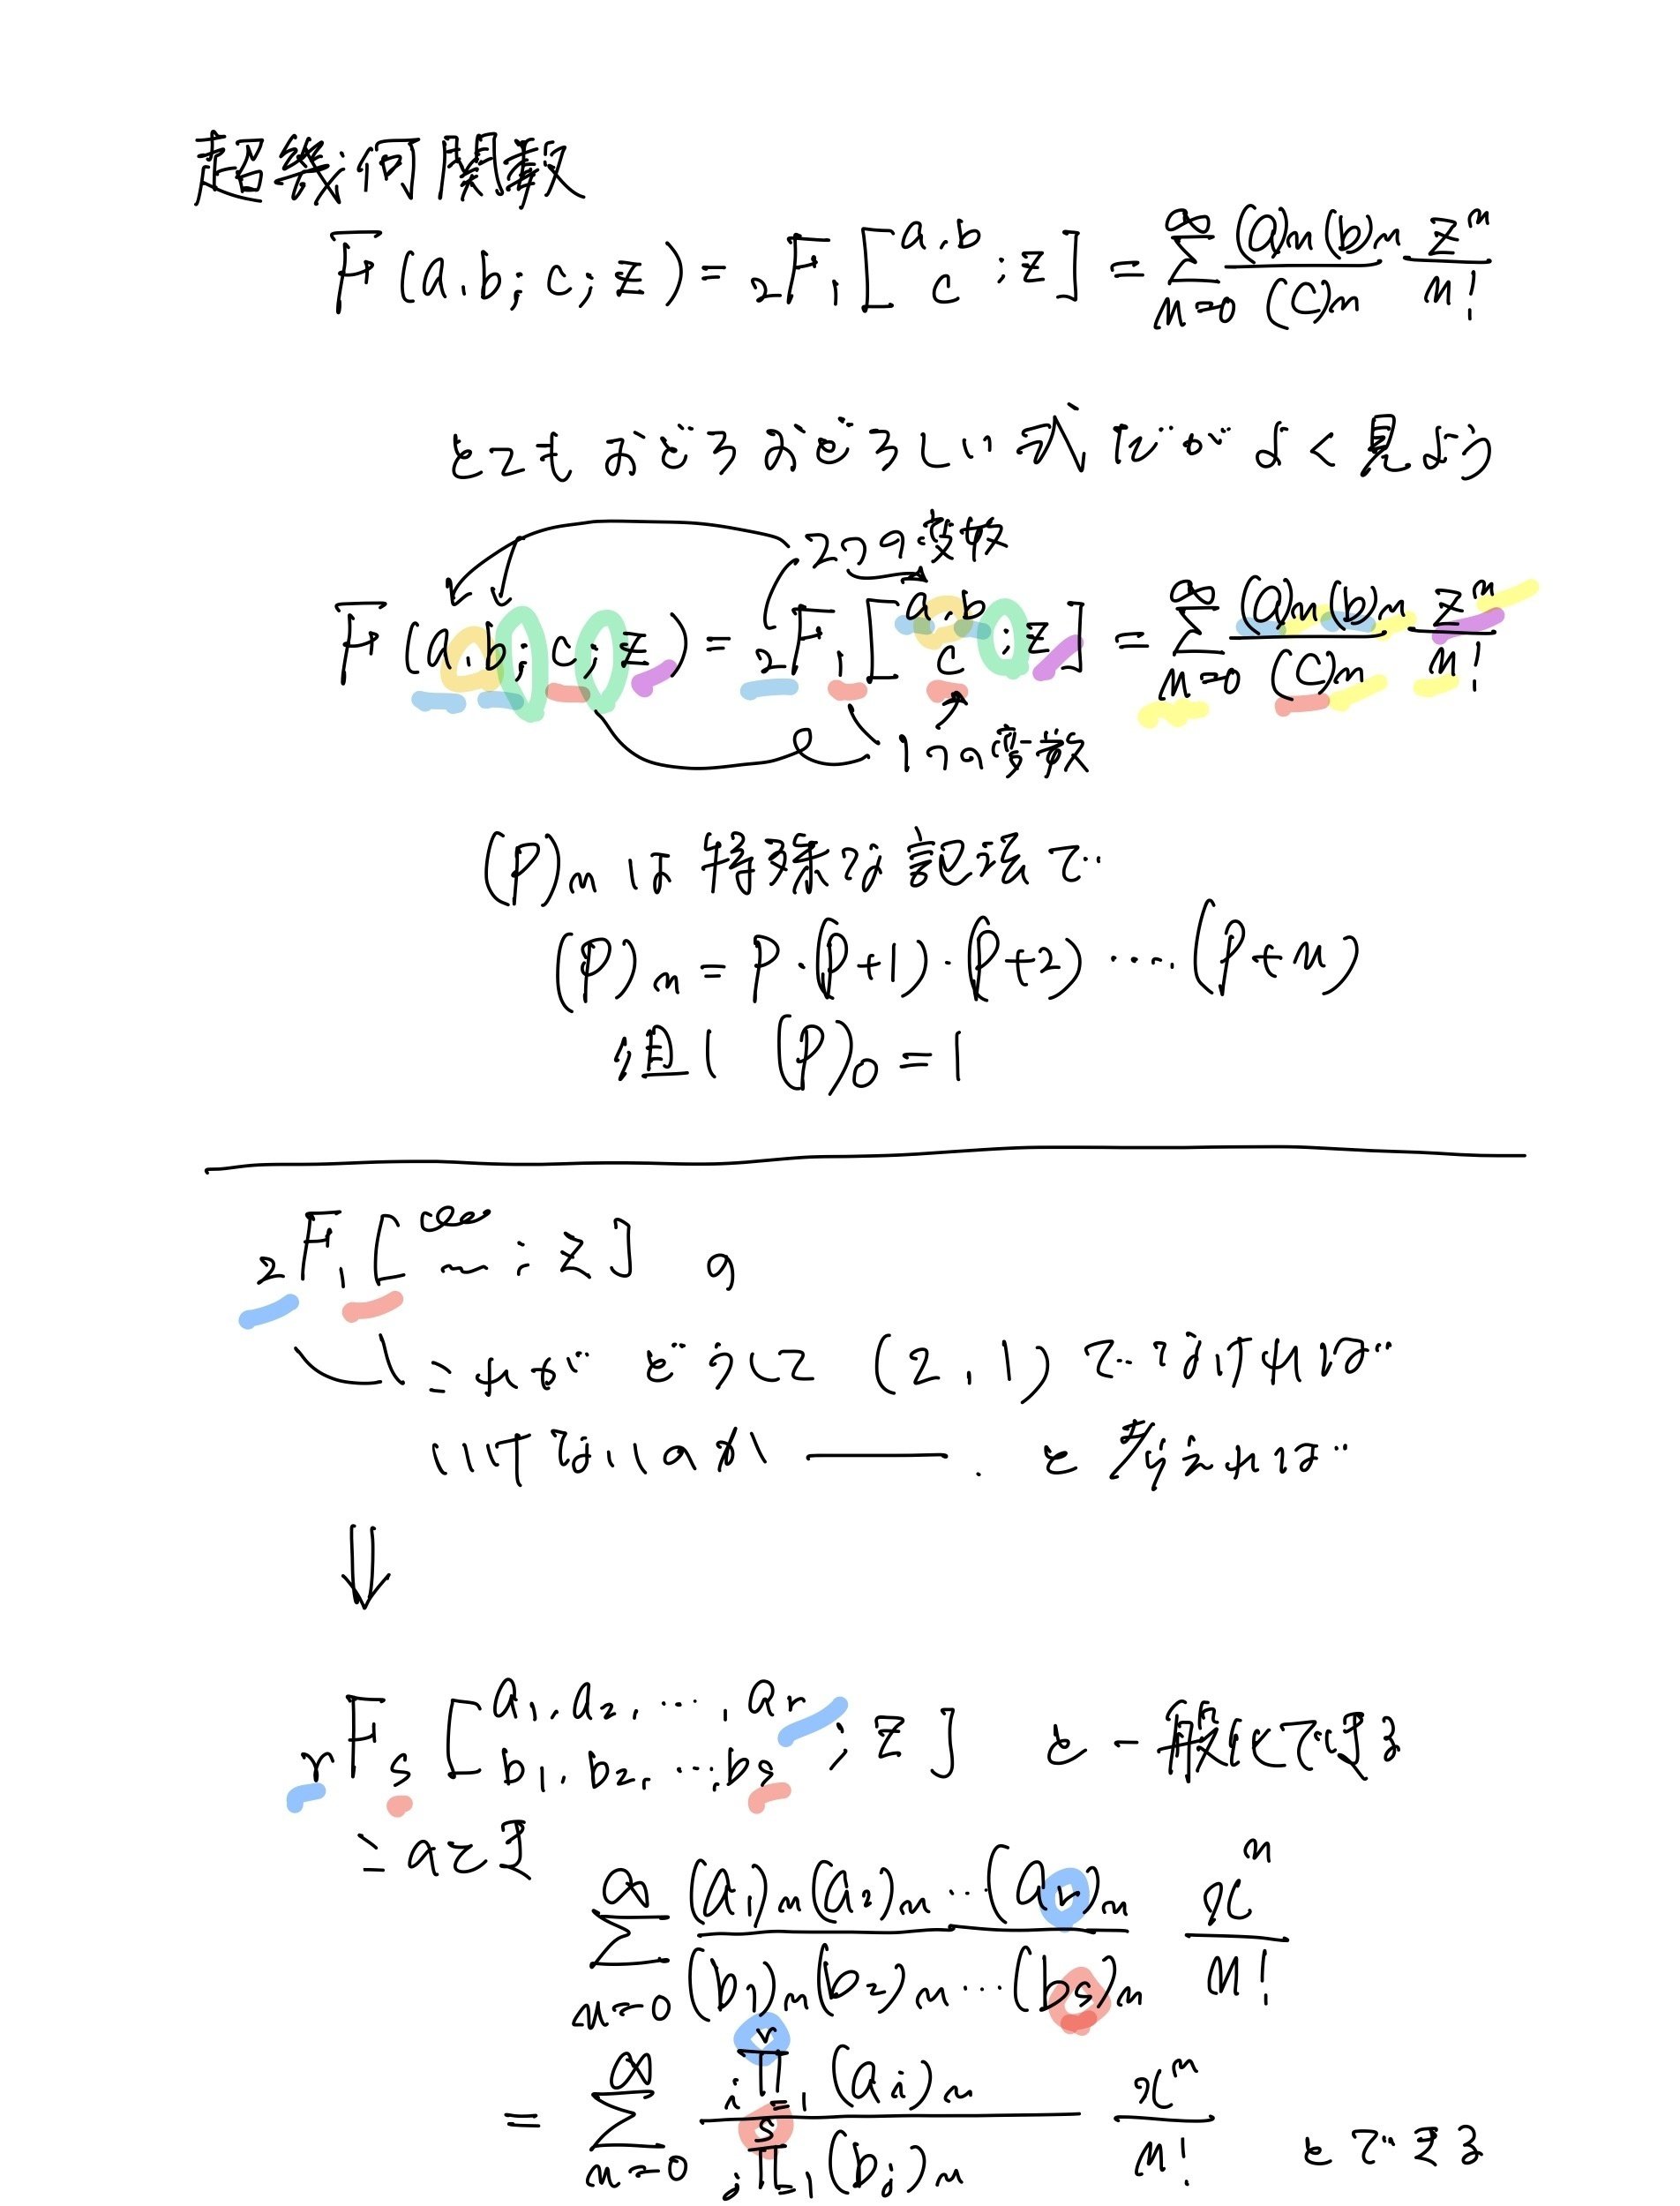 超幾何関数
F(a,b;c;z) = ₂F₁[a,b c ;z] = ∑_{n=0}^{∞} (a)n(b)n/(c)n zⁿ/n!
とてもおどろおどろしい式だがよく見よう
2つの変数
F(a,b;c;z) = ₂F₁[a,b c ;z] = ∑_{n=0}^{∞} (a)n(b)n/(c)n zⁿ/n!
1つの変数
(P)n は特殊な記法で
(P)n = P・(P+1)・(P+2)・・・・(P+n)
但し (P)₀ = 1
₂F₁[ ; z] の
これがどうして (2,1) でなければ
いけないのか ――. と考えれば
⇓
rFs[a₁,a₂,…,ar b₁,b₂,…,bs ; z] と一般化できる
このとき
∑_{n=0}^{∞} (a₁)n(a₂)n…(ar)n/(b₁)n(b₂)n…(bs)n xⁿ/n!
= ∑_{n=0}^{∞} ∏_{i=1}^{r}(ai)n/∏_{j=1}^{s}(bj)n xⁿ/n! とできる